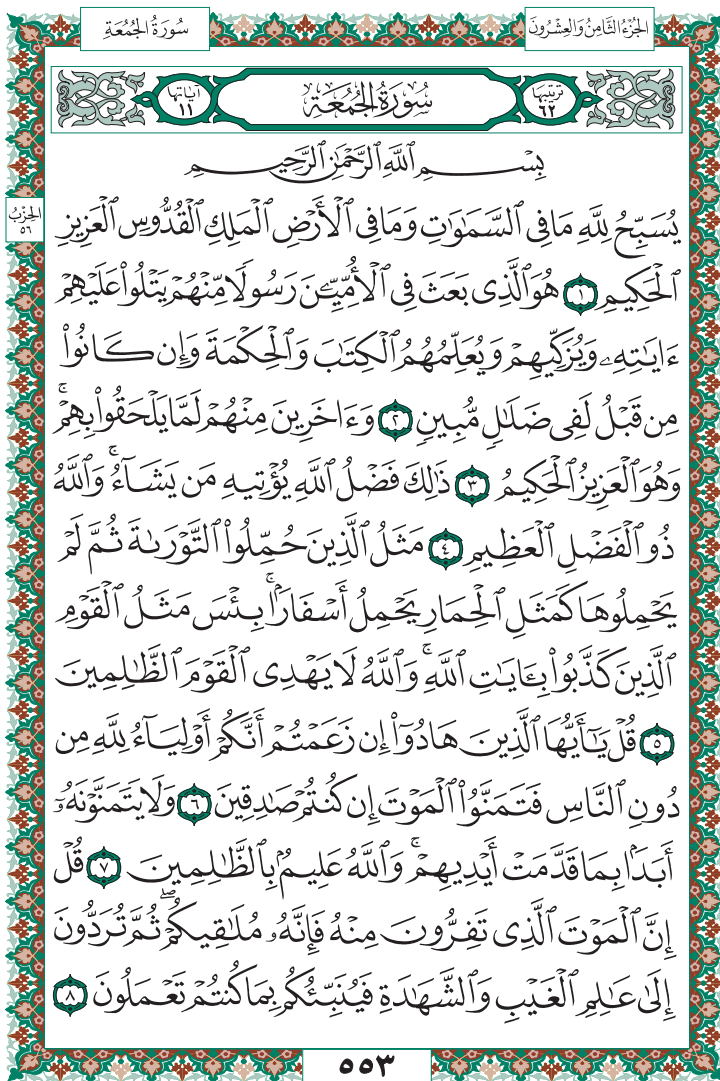 سُورَةُ الجُمُعَةِ
الجُزْءُ الثَّامِنُ وَالعِشْرُونَ
ترتيبها ٦٢
سُورَةُ الجُمُعَةِ
آياتها ١١
بِسْمِ ٱللَّهِ ٱلرَّحْمَٰنِ ٱلرَّحِيمِ
الحِزْبُ ٥٦
يُسَبِّحُ لِلَّهِ مَا فِي ٱلسَّمَٰوَٰتِ وَمَا فِي ٱلْأَرْضِ ٱلْمَلِكِ ٱلْقُدُّوسِ ٱلْعَزِيزِ
ٱلْحَكِيمِ ١ هُوَ ٱلَّذِي بَعَثَ فِي ٱلْأُمِّيِّـۧنَ رَسُولًا مِّنْهُمْ يَتْلُوا۟ عَلَيْهِمْ
ءَايَٰتِهِۦ وَيُزَكِّيهِمْ وَيُعَلِّمُهُمُ ٱلْكِتَٰبَ وَٱلْحِكْمَةَ وَإِن كَانُوا۟
مِن قَبْلُ لَفِي ضَلَٰلٍ مُّبِينٍ ٢ وَءَاخَرِينَ مِنْهُمْ لَمَّا يَلْحَقُوا۟ بِهِمْۚ
وَهُوَ ٱلْعَزِيزُ ٱلْحَكِيمُ ٣ ذَٰلِكَ فَضْلُ ٱللَّهِ يُؤْتِيهِ مَن يَشَآءُۚ وَٱللَّهُ
ذُو ٱلْفَضْلِ ٱلْعَظِيمِ ٤ مَثَلُ ٱلَّذِينَ حُمِّلُوا۟ ٱلتَّوْرَىٰةَ ثُمَّ لَمْ
يَحْمِلُوهَا كَمَثَلِ ٱلْحِمَارِ يَحْمِلُ أَسْفَارًۢاۚ بِئْسَ مَثَلُ ٱلْقَوْمِ
ٱلَّذِينَ كَذَّبُوا۟ بِـَٔايَٰتِ ٱللَّهِۚ وَٱللَّهُ لَا يَهْدِي ٱلْقَوْمَ ٱلظَّٰلِمِينَ
٥ قُلْ يَٰٓأَيُّهَا ٱلَّذِينَ هَادُوٓا۟ إِن زَعَمْتُمْ أَنَّكُمْ أَوْلِيَآءُ لِلَّهِ مِن
دُونِ ٱلنَّاسِ فَتَمَنَّوُا۟ ٱلْمَوْتَ إِن كُنتُمْ صَٰدِقِينَ ٦ وَلَا يَتَمَنَّوْنَهُۥٓ
أَبَدًۢا بِمَا قَدَّمَتْ أَيْدِيهِمْۚ وَٱللَّهُ عَلِيمٌۢ بِٱلظَّٰلِمِينَ ٧ قُلْ
إِنَّ ٱلْمَوْتَ ٱلَّذِي تَفِرُّونَ مِنْهُ فَإِنَّهُۥ مُلَٰقِيكُمْۖ ثُمَّ تُرَدُّونَ
إِلَىٰ عَٰلِمِ ٱلْغَيْبِ وَٱلشَّهَٰدَةِ فَيُنَبِّئُكُم بِمَا كُنتُمْ تَعْمَلُونَ ٨
٥٥٣